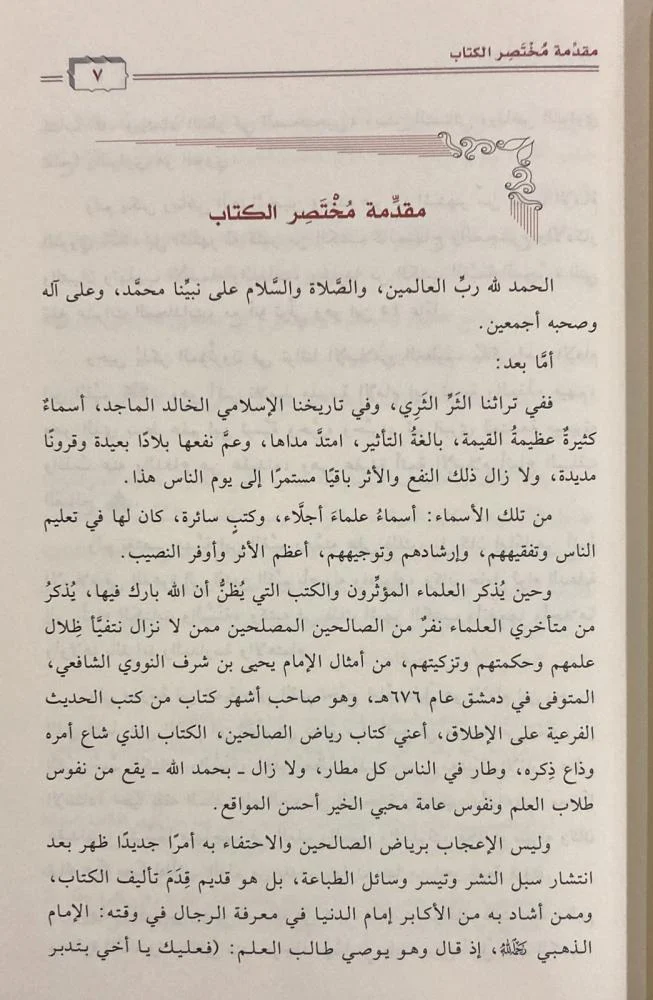 مقدِّمة مُخْتَصِر الكتاب
٧
مقدِّمة مُخْتَصِر الكتاب
الحمد لله ربِّ العالمين، والصَّلاة والسَّلام على نبيِّنا محمَّد، وعلى آله
وصحبه أجمعين.
أمَّا بعد:
ففي تراثنا الثَّرِّ الثَرِي، وفي تاريخنا الإسلامي الخالد الماجد، أسماءٌ
كثيرةٌ عظيمةُ القيمة، بالغةُ التأثير، امتدَّ مداها، وعمَّ نفعها بلادًا بعيدة وقرونًا
مديدة، ولا زال ذلك النفع والأثر باقيًا مستمرًا إلى يوم الناس هذا.
من تلك الأسماء: أسماءُ علماءَ أجلَّاء، وكتبٍ سائرة، كان لها في تعليم
الناس وتفقيههم، وإرشادهم وتوجيههم، أعظم الأثر وأوفر النصيب.
وحين يُذكر العلماء المؤثِّرون والكتب التي يُظنُّ أن الله بارك فيها، يُذكرُ
من متأخري العلماء نفرٌ من الصالحين المصلحين ممن لا نزال نتفيَّأ ظِلال
علمهم وحكمتهم وتزكيتهم، من أمثال الإمام يحيى بن شرف النووي الشافعي،
المتوفى في دمشق عام ٦٧٦هـ، وهو صاحب أشهر كتاب من كتب الحديث
الفرعية على الإطلاق، أعني كتاب رياض الصالحين، الكتاب الذي شاع أمره
وذاع ذِكره، وطار في الناس كل مطار، ولا زال ـ بحمد الله ـ يقع من نفوس
طلاب العلم ونفوس عامة محبي الخير أحسن المواقع.
وليس الإعجاب برياض الصالحين والاحتفاء به أمرًا جديدًا ظهر بعد
انتشار سبل النشر وتيسر وسائل الطباعة، بل هو قديم قِدَمَ تأليف الكتاب،
وممن أشاد به من الأكابر إمام الدنيا في معرفة الرجال في وقته: الإمام
الذهبي رَحِمَهُ اللهُ، إذ قال وهو يوصي طالب العلم: (فعليك يا أخي بتدبر